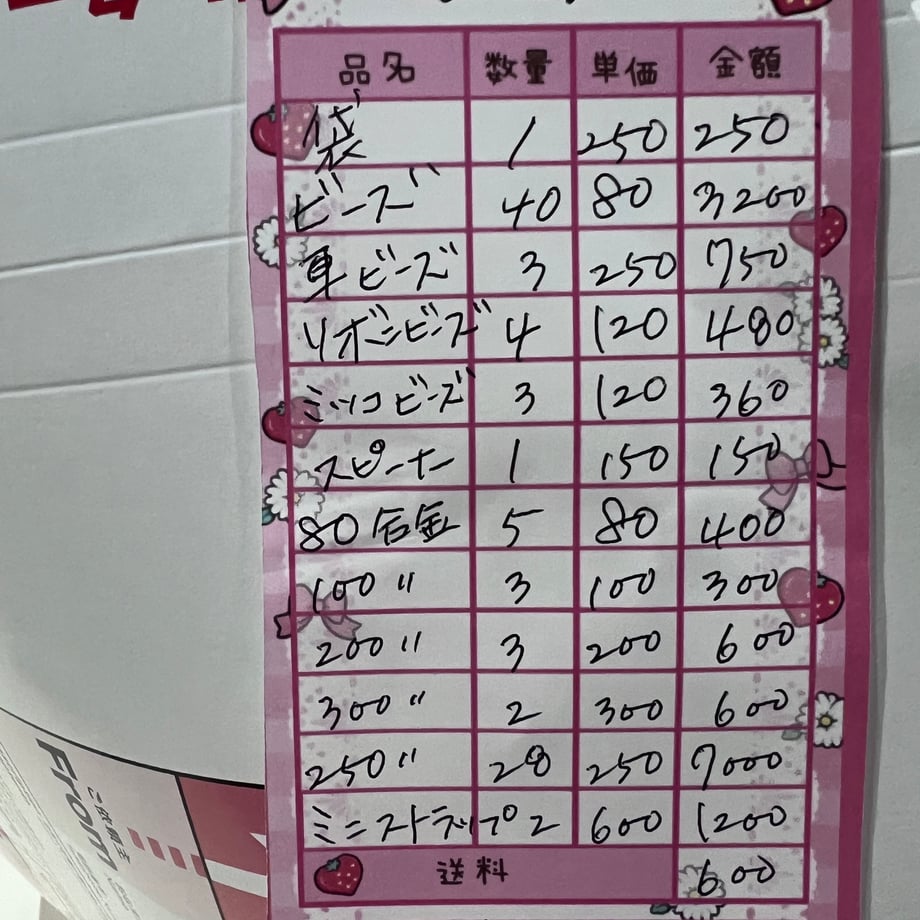 品名 数量 単価 金額
袋 1 250 250
ビーズ 40 80 3200
車ビーズ 3 250 750
リボンビーズ 4 120 480
ミッコビーズ 3 120 360
スピーナー 1 150 150
80合金 5 80 400
100〃 3 100 300
200〃 3 200 600
300〃 2 300 600
250〃 28 250 7000
ミニストラップ 2 600 1200
送料 600
From
ご依頼主